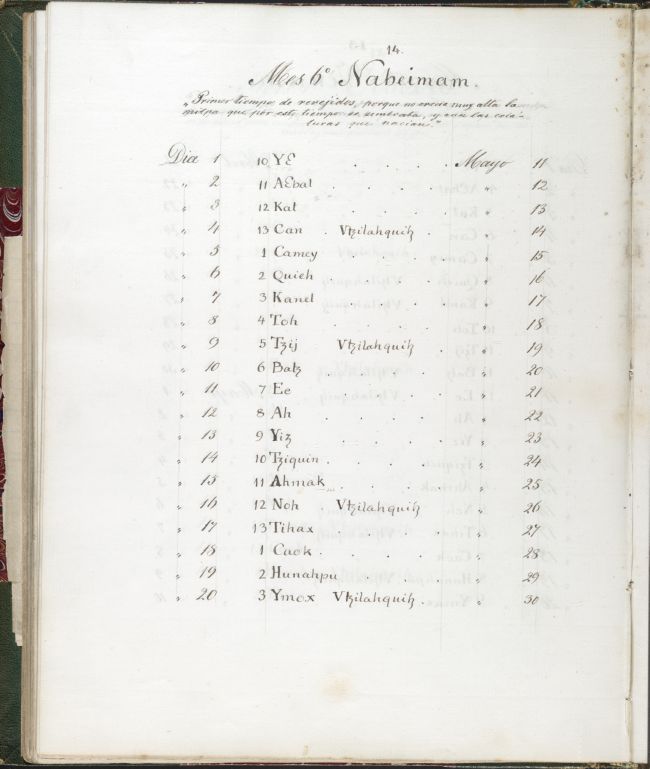 14.
Mes 6º Nabeimam.
"Primer tiempo de revejidos, porque no crecia muy alta la
milpa que por este tiempo se sembraba, y aun las cria-
turas que nacian."
Dia 1 10 YƐ . . . . Mayo 11
" 2 11 AƐbal . . . . " 12
" 3 12 Kat . . . . " 13
" 4 13 Can . Vtzilahquih . " 14
" 5 1 Camey . . . . " 15
" 6 2 Quieh . . . . " 16
" 7 3 Kanel . . . . " 17
" 8 4 Toh . . . . " 18
" 9 5 Tzij Vtzilahquih . " 19
" 10 6 Batz . . . . " 20
" 11 7 Ee . . . . " 21
" 12 8 Ah . . . . " 22
" 13 9 Yiz . . . . " 23
" 14 10 Tziquin . . . . " 24
" 15 11 Ahmak . . . . " 25
" 16 12 Noh . Vtzilahquih " 26
" 17 13 Tihax . . . . " 27
" 18 1 Caok . . . . " 28
" 19 2 Hunahpu . . . " 29
" 20 3 Ymox Vtzilahquih . " 30